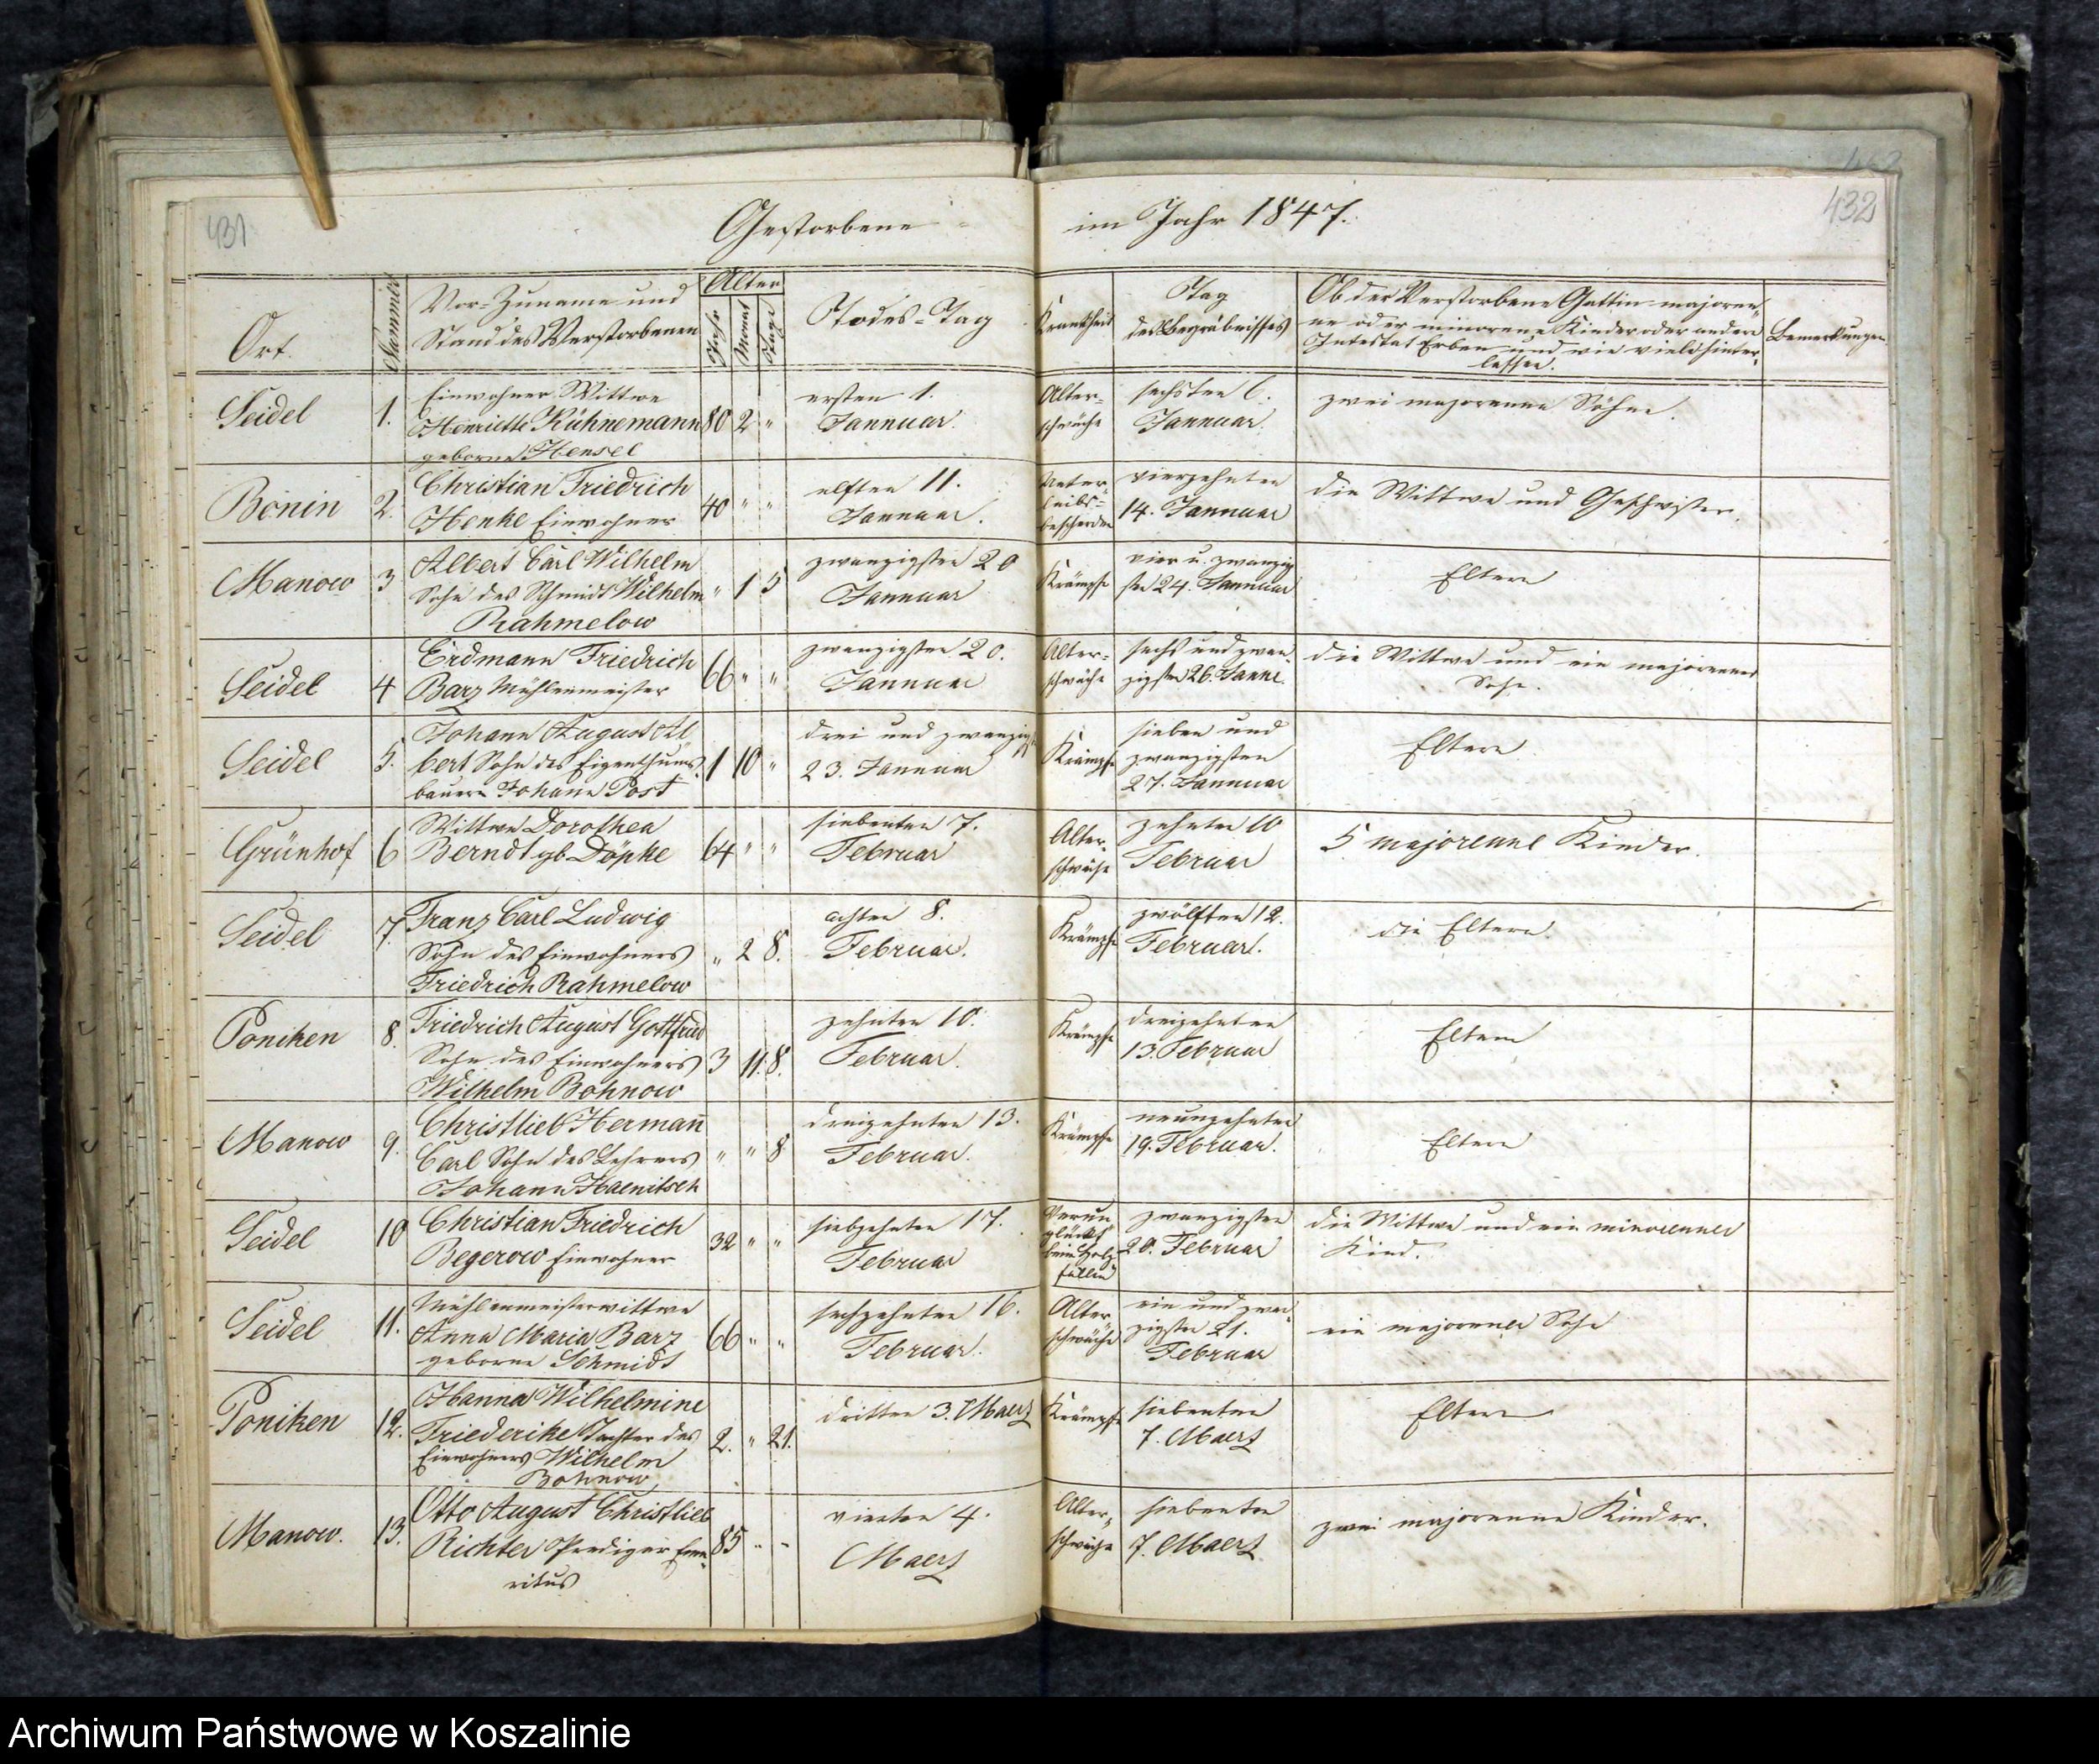 431
Gestorbene
im Jahr 1847.
432
Ort.
Nummer
Vor- Zuname und
Stand des Verstorbenen
Alter
Jahr
Monat
Tage
Todes-Tag
Krankheit
Tag
des Begräbnisses
Ob der Verstorbene Gattin majoren-
ne oder minorene Kinder oder andere
Intestat Erben und wie viele hinter-
lassen.
Bemerkungen
Seidel
1.
Einwohner Wittwe
Henriette Kühnemann
geborne Hensel
80 2 "
ersten 1.
Jannuar.
Alter-
schwäche
sechsten 6.
Jannuar.
zwei majorenne Söhne.
Bonin
2.
Christian Friedrich
Henke Einwohner
40 " "
elften 11.
Jannuar.
Unter-
leibs-
beschwerden
vierzehnten
14. Jannuar
die Wittwe und Geschwister.
Manow
3
Albert Carl Wilhelm
Sohn des Schmidt Wilhelm
Rahmelow
" 1 5
zwanzigsten 20
Jannuar
Krämpfe
vier u. zwanzig
sten 24. Jannuar
Eltern
Seidel
4
Erdmann Friedrich
Barz Mühlenmeister
66 " "
zwanzigsten 20.
Jannuar
Alter-
schwäche
sechs und zwan-
zigsten 26. Jannr.
die Wittwe und ein majorenner
Sohn.
Seidel
5.
Johann August Al
bert Sohn des Eigenthums-
bauern Johann Post
1 10 "
drei und zwanzigst
23. Jannuar
Krämpfe
sieben und
zwanzigsten
27. Jannuar
Eltern
Grünhof
6
Wittwe Dorothea
Berndt gb. Döpke
64 " "
siebenten 7.
Februar
Alter-
schwäche
zehnten 10
Februar
5 majorenne Kinder.
Seidel
7.
Franz Carl Ludwig
Sohn des Einwohners
Friedrich Rahmelow
" 2 8.
achten 8.
Februar.
Krämpfe
zwölften 12.
Februar.
die Eltern.
Poniken
8.
Friedrich August Gottfried
Sohn des Einwohners
Wilhelm Bohnow
3 11. 8.
zehnten 10.
Februar.
Krämpfe
dreizehnten
13. Februar
Eltern
Manow
9.
Christlieb Herman̅
Carl Sohn des Lehrers
Johann Haenitsch
" " 8
dreizehnten 13.
Februar.
Krämpfe
neunzehnten
19. Februar.
Eltern
Seidel
10
Christian Friedrich
Begerow Einwohner
32 " "
siebzehnten 17.
Februar
Verun
glückt
beim Holz
fällen
zwanzigsten
20. Februar
die Wittwe und ein minorenner
Kind.
Seidel
11.
Mühlenmeisterwittwe
Anna Maria Barz
geborne Schmidt
66 " "
sechzehnten 16.
Februar.
Alter-
schwäche
ein und zwan-
zigsten 21.
Februar
ein majorener Sohn
Poniken
12.
Hanna Wilhelmine
Friederike Tochter des
Einwohners Wilhelm
Bohnow
2. " 21.
dritten 3. Maerz
Krämpfe
siebenten
7. Maerz
Eltern
Manow.
13.
Otto August Christlieb
Richter Prediger Eme-
ritus
85 - -
vierten 4.
Maerz
Alter-
schwäche
siebenten
7. Maerz
zwei majorenne Kinder.
Archiwum Państwowe w Koszalinie